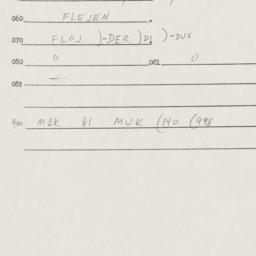 060 FLEJEN .
070 FLOJ )-DER )DI )-DUS
080 0 081 0
082 —
900 MAK QI MUK (140 (998